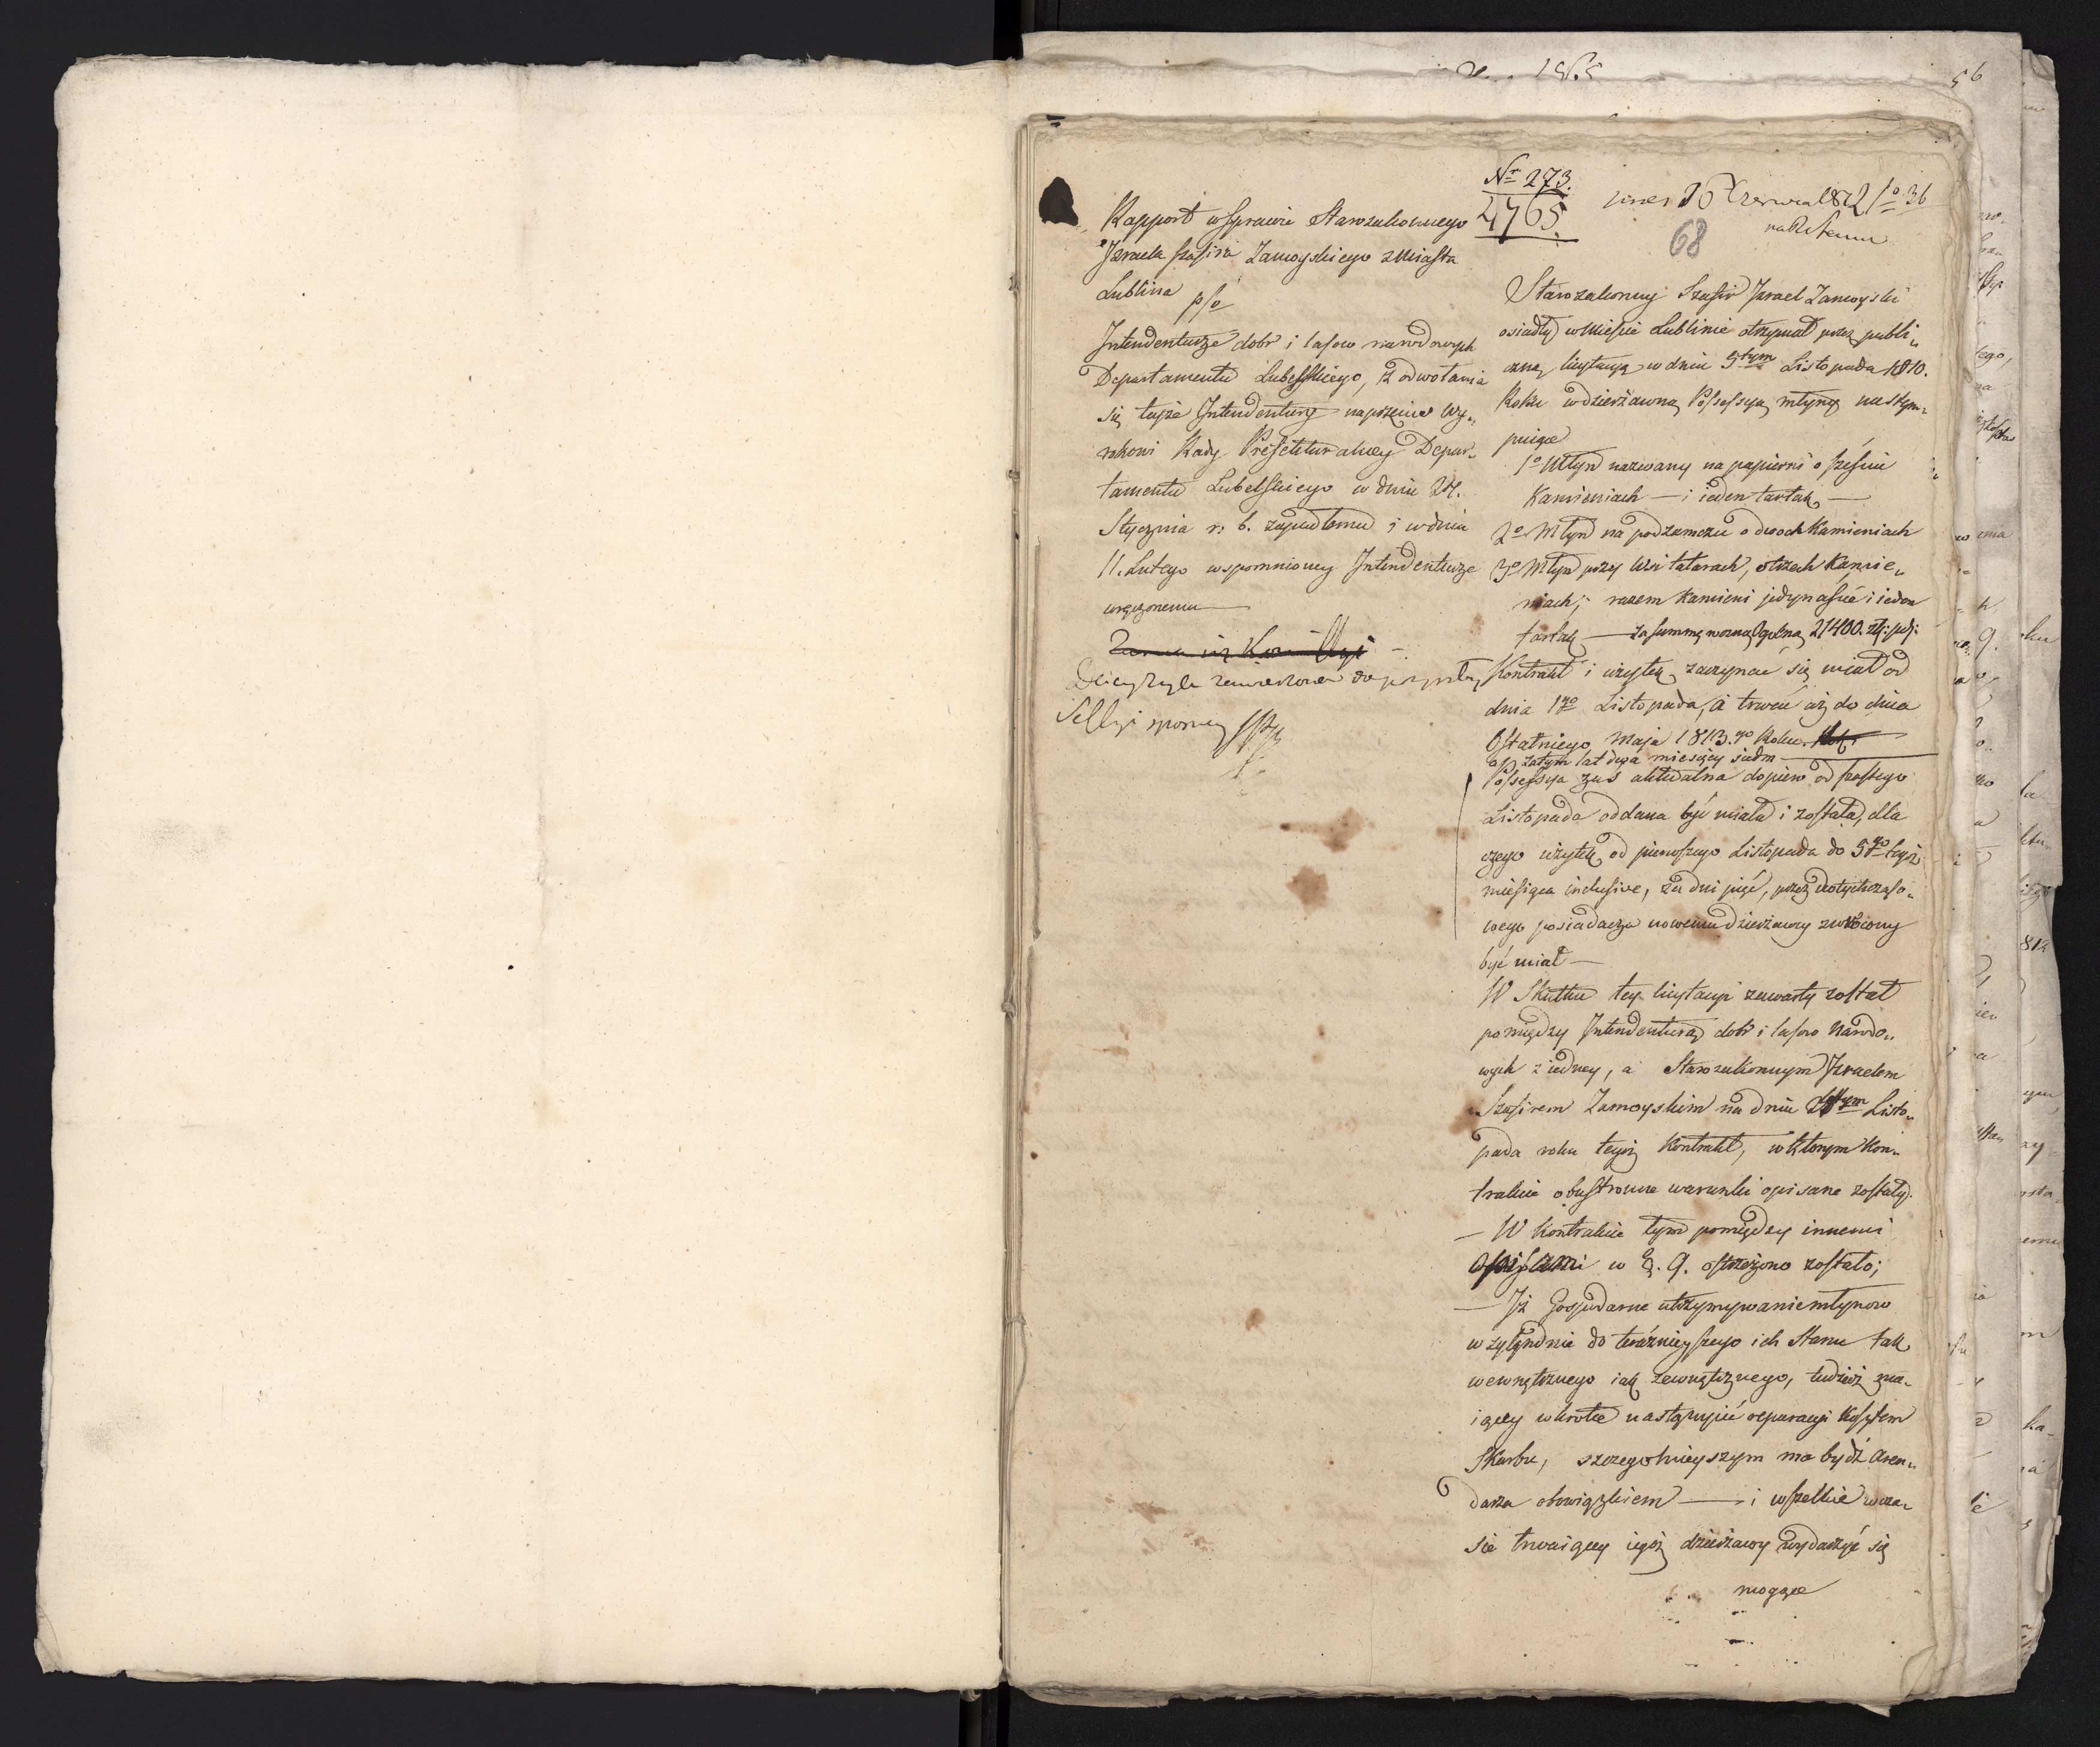 56
Nr 273.
4765.
16 Czerwca 1812 fo 36
68
Rapport w sprawie Starozakonnego
Izraela Szafira Zamoyskiego z Miasta
Lublina p/o
Intendenturze dobr i lasow narodowych
Departamentu Lubelskiego, z odwołania
się teyże Intendentury naprzeciw Wy„
rokowi Rady Prefekturalney Depar„
tamentu Lubelskiego w dniu 24.
Stycznia r. b. zapadłemu i w dniu
11. Lutego wspomnioney Intendenturze
wręczonemu
Starozakonny Szafir Izrael Zamoyski
osiadły w Mieście Lublinie otrzymał przez publi„
czną licytacyą w dniu 5tym Listopada 1810.
Roku w dzierżawną Possessyą młyny nastę„
puiące
1o Młyn nazwany na papierni o sześciu
Kamieniach — i ieden tartak —
2o Młyn na podzamczu o dwoch Kamieniach
3o Młyn przy Wsi tatarach, o trzech Kamie„
niach; razem Kamieni jedynaście i ieden
tartak — za summę roczną Ogolną 21400. złł: pol:
Kontrakt i użytek zaczynać się miał od
dnia 1go Listopada, a trwać aż do dnia
Ostatniego Maja 1813.go Roku
a zatym lat dwa miesięcy siedm
Possessya zaś aktualna dopiero od szostego
Listopada oddana być miała i została, dla
czego użytek od pierwszego Listopada do 5go tegoż
miesiąca inclusive, za dni pięć, przez dotychczaso„
wego posiadacza nowemu dzierżawcy zwrócony
być miał —
W Skutku tey licytacyi zawarty został
pomiędzy Intendenturą dobr i lasow Narodo„
wych z iedney, a Starozakonnym Izraelem
Szafirem Zamoyskim na dniu Listo„
pada roku tegoż Kontrakt, w ktorym Kon„
trakcie obustronne warunki opisane zostały.
— W Kontrakcie tym pomiędzy innemi
Opisami w §. 9. ostrzeżono zostało;
— Iż Gospodarne utrzymywanie młynow
względnie do teraźnieyszego ich Stanu tak
wewnętrznego iak zewnętrznego, tudzież ma„
iącey wkrotce nastąpić reparacyi Kosztem
Skarbu, szczegolnieyszym ma bydź Aren„
darza obowiązkiem — i wszelkie w cza„
sie trwaiącey iegoż dzierżawy wydarzyć się
mogące